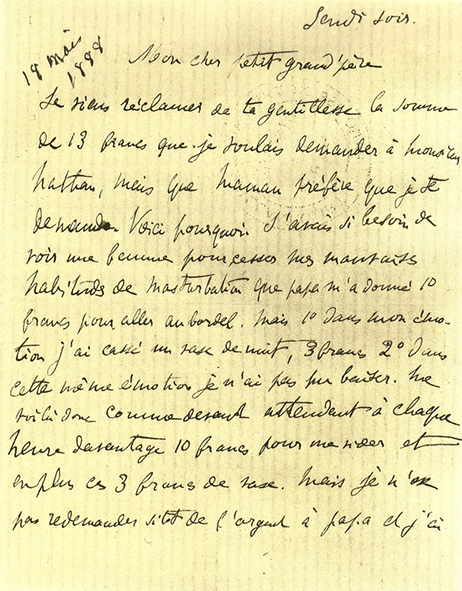 Jeudi soir.
18 mai
1888
Mon cher petit grand'père
Je viens réclamer de ta gentillesse la somme
de 13 francs que je voulais demander à Monsieur
Nathan, mais que Maman préfère que je te
demande. Voici pourquoi. J'avais si besoin de
voir une femme pour cesser mes mauvaises
habitudes de masturbation que papa m'a donné 10
francs pour aller au bordel. Mais 1° dans mon émo-
tion j'ai cassé un vase de nuit, 3 francs 2° dans
cette même émotion je n'ai pas pu baiser. Me
voilà donc comme devant attendant à chaque
heure davantage 10 francs pour me vider et
en plus ces 3 francs de vase. Mais je n'ose
pas redemander sitôt de l'argent à papa et j'ai